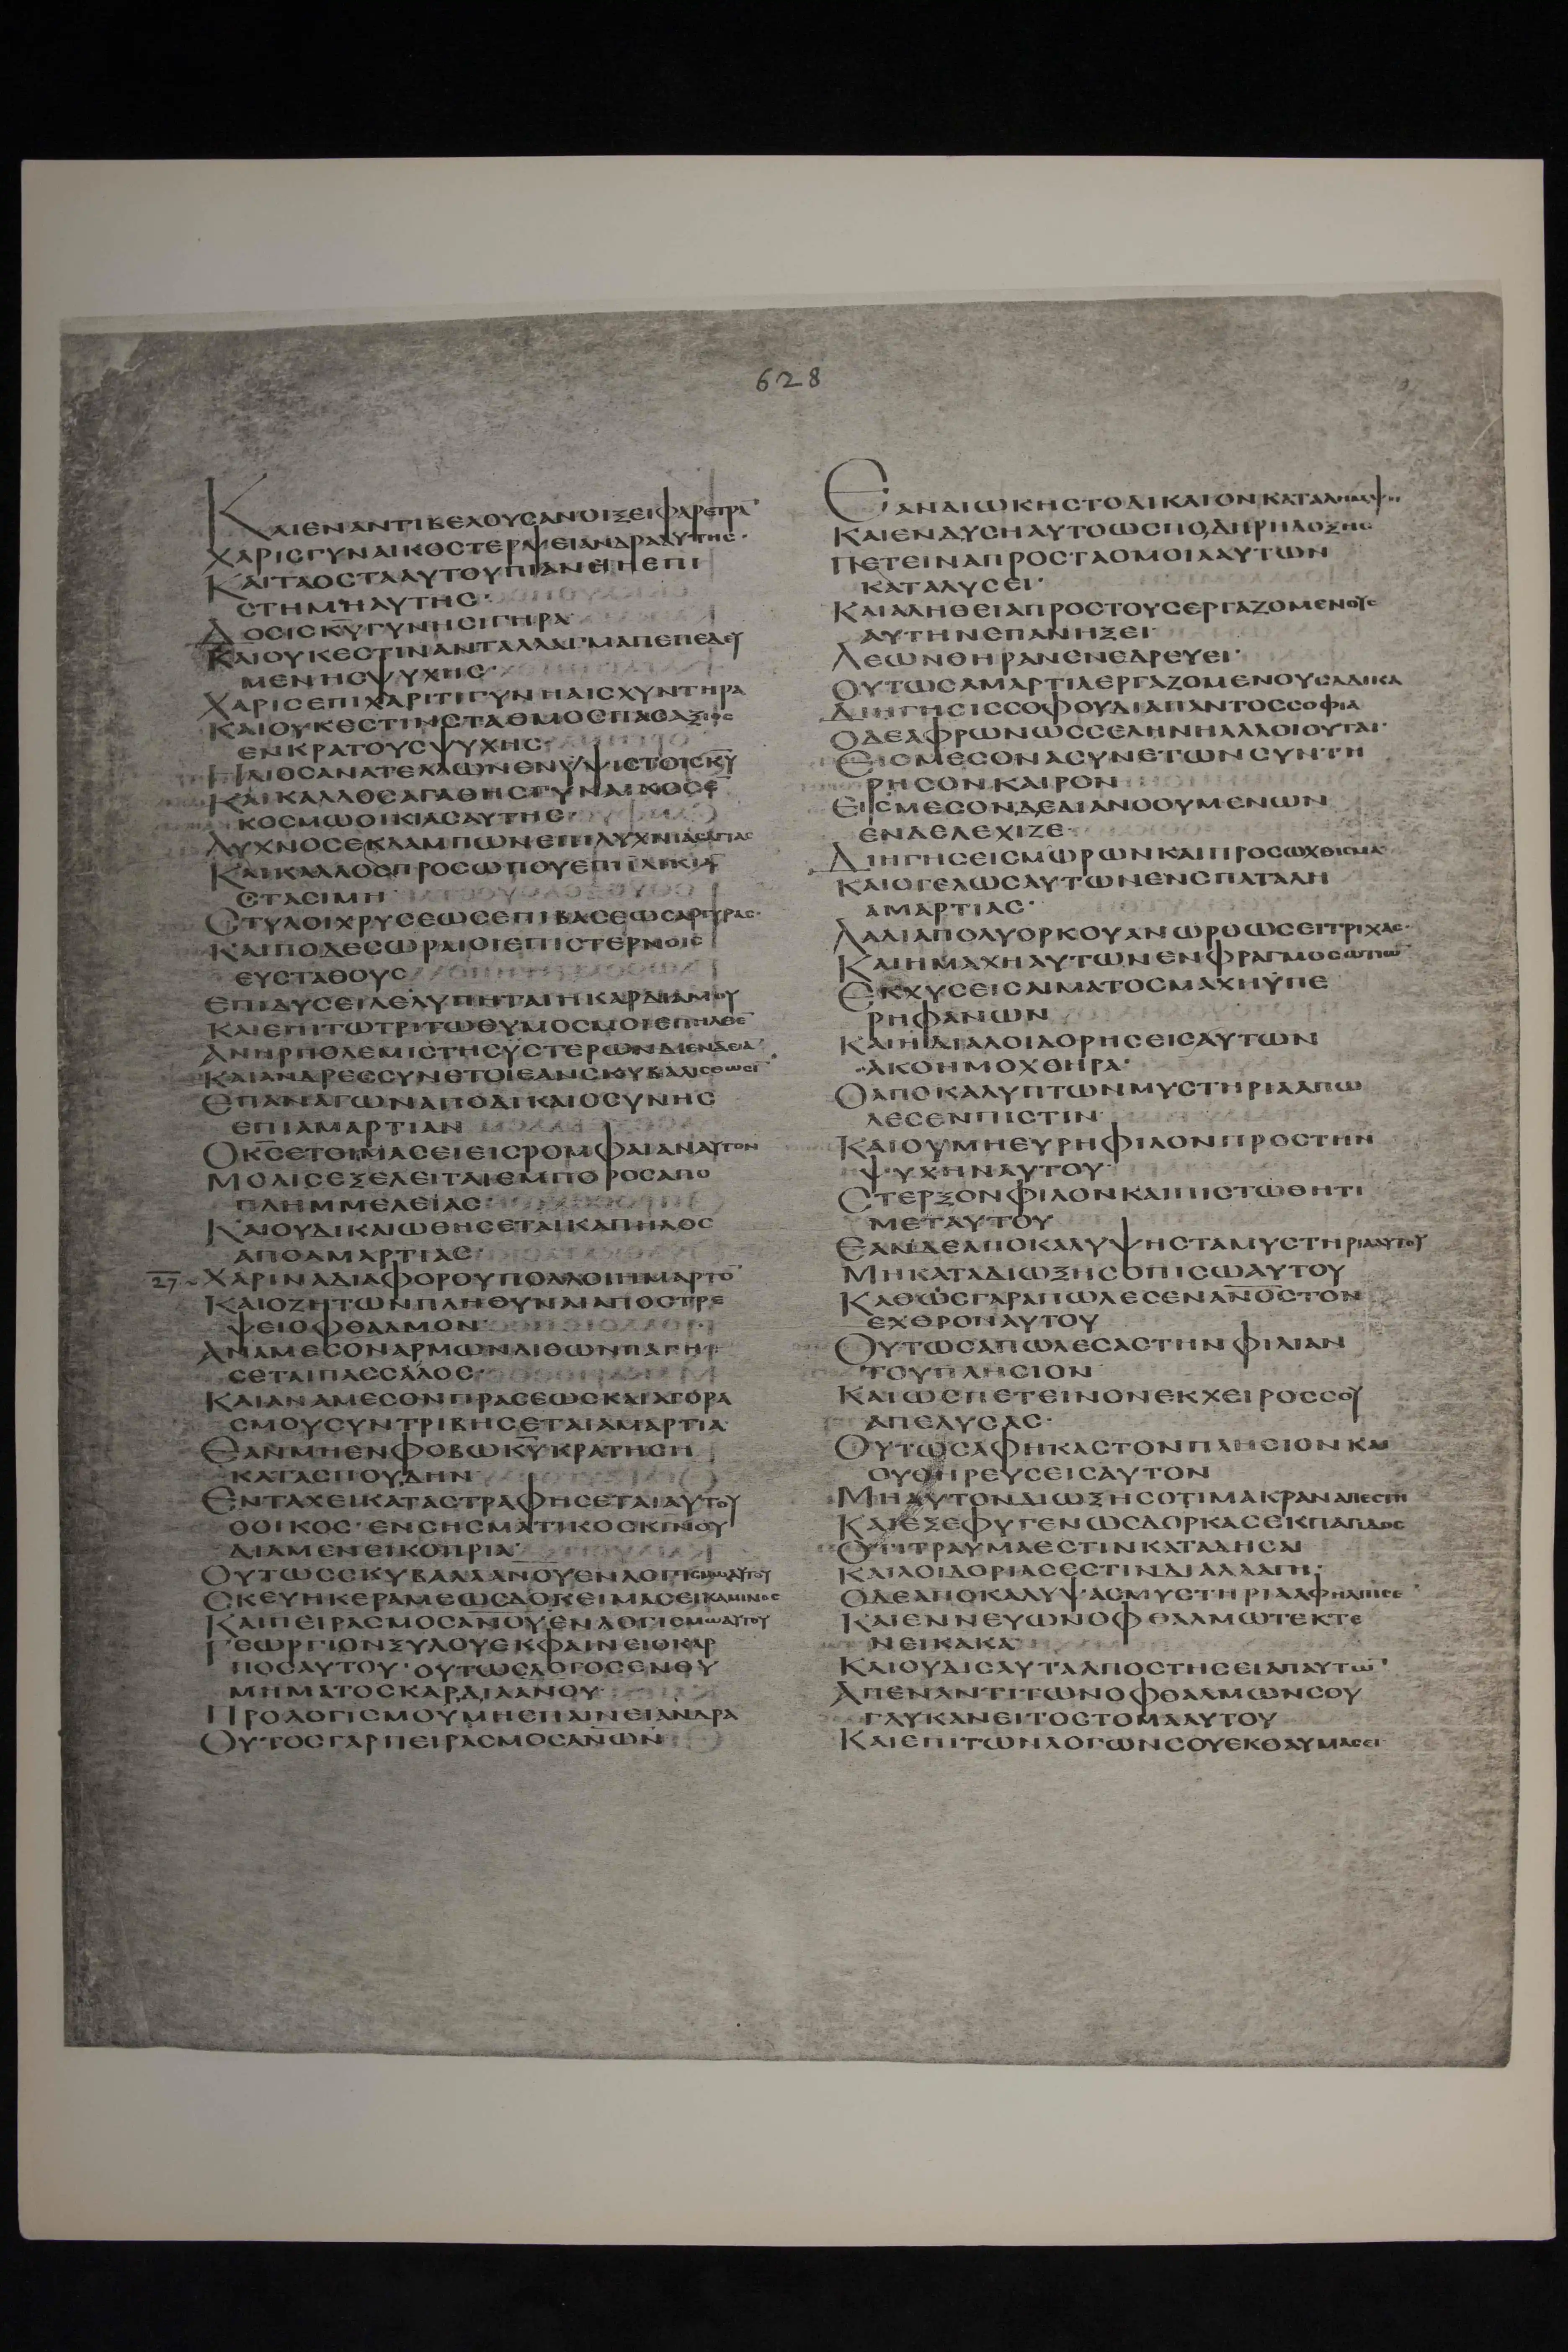 628
ΚΑΙΕΝΑΝΤΙΒΕΛΟΥСΑΝΟΙΞΕΙΦΑΡΕΤΡΑ̅
ΧΑΡΙСΓΥΝΑΙΚΟСΤΕΡΨΕΙΑΝΔΡΑΑΥΤΗС·
ΚΑΙΤΑΟСΤΑΑΥΤΟΥΠΙΑΝΕΙΗΕΠΙ
СΤΗΜΗΑΥΤΗС·
ΔΟСΙСΚ̅Υ̅ΓΥΝΗСΙΓΗΡΑ
ΚΑΙΟΥΚΕСΤΙΝΑΝΤΑΛΛΑΓΜΑΠΕΠΕΔΕΥ
ΜΕΝΗСΨΥΧΗС·
ΧΑΡΙСΕΠΙΧΑΡΙΤΙΓΥΝΗΑΙСΧΥΝΤΗΡΑ
ΚΑΙΟΥΚΕСΤΙΝСΤΑΘΜΟСΠΑСΑΞΙΟС
ΕΝΚΡΑΤΟΥСΨΥΧΗС·
ΗΛΙΟСΑΝΑΤΕΛΛΩΝΕΝΥΨΙСΤΟΙСΚ̅Υ̅
ΚΑΙΚΑΛΛΟСΑΓΑΘΗСΓΥΝΑΙΚΟСΕ̅
ΚΟСΜΩΟΙΚΙΑСΑΥΤΗС·
ΛΥΧΝΟСΕΚΛΑΜΠΩΝΕΠΙΛΥΧΝΙΑСΑΓΙΑС
ΚΑΙΚΑΛΛΟСΠΡΟСΩΠΟΥΕΠΙΗΛΙΚΙΑ
СΤΑСΙΜΗ
СΤΥΛΟΙΧΡΥСΕΩСΕΠΙΒΑСΕΩСΑΡΓΥΡΑС·
ΚΑΙΠΟΔΕСΩΡΑΙΟΙΕΠΙСΤΕΡΝΟΙС
ΕΥСΤΑΘΟΥС
ΕΠΙΔΥСΕΙΛΕΛΥΠΗΤΑΙΗΚΑΡΔΙΑΜΟΥ
ΚΑΙΕΠΙΤΩΤΡΙΤΩΘΥΜΟСΜΟΙΕΠΗΛΘΕ̅
ΑΝΗΡΠΟΛΕΜΙСΤΗСΥСΤΕΡΩΝΔΙΕΝΔΕΙΑ̅
ΚΑΙΑΝΔΡΕССΥΝΕΤΟΙΕΑΝСΚΥΒΑΛΙСΘΩСΙ̅
ΕΠΑΝΑΓΩΝΑΠΟΔΙΚΑΙΟСΥΝΗС
ΕΠΙΑΜΑΡΤΙΑΝ
ΟΚ̅С̅ΕΤΟΙΜΑСΕΙΕΙСΡΟΜΦΑΙΑΝΑΥΤΟΝ
ΜΟΛΙСΕΞΕΛΕΙΤΑΙΕΜΠΟΡΟСΑΠΟ
ΠΛΗΜΜΕΛΕΙΑС·
ΚΑΙΟΥΔΙΚΑΙΩΘΗСΕΤΑΙΚΑΠΗΛΟС
ΑΠΟΑΜΑΡΤΙΑС·
27 ΧΑΡΙΝΑΔΙΑΦΟΡΟΥΠΟΛΛΟΙΗΜΑΡΤΟ̅
ΚΑΙΟΖΗΤΩΝΠΛΗΘΥΝΑΙΑΠΟСΤΡΕ
ΨΕΙΟΦΘΑΛΜΟΝ
ΑΝΑΜΕСΟΝΑΡΜΩΝΛΙΘΩΝΠΑΓΗ
СΕΤΑΙΠΑССΑΛΟС·
ΚΑΙΑΝΑΜΕСΟΝΠΡΑСΕΩСΚΑΙΑΓΟΡΑ
СΜΟΥСΥΝΤΡΙΒΗСΕΤΑΙΑΜΑΡΤΙΑ
ΕΑΝΜΗΕΝΦΟΒΩΚ̅Υ̅ΚΡΑΤΗСΗ
ΚΑΤΑСΠΟΥΔΗΝ
ΕΝΤΑΧΕΙΚΑΤΑСΤΡΑΦΗСΕΤΑΙΑΥΤΟΥ
ΟΟΙΚΟС·ΕΝСΗСΜΑΤΙΚΟСΚΙΝΟΥ
ΔΙΑΜΕΝΕΙΚΟΠΡΙΑ
ΟΥΤΩССΚΥΒΑΛΑΑ̅Ν̅Ο̅Υ̅ΕΝΛΟΓΙСΜΩΑΥΤΟΥ
СΚΕΥΗΚΕΡΑΜΕΩСΔΟΚΕΙΜΑСΕΙΚΑΜΙΝΟС
ΚΑΙΠΕΙΡΑСΜΟСΑ̅Ν̅Ο̅Υ̅ΕΝΛΟΓΙСΜΩΑΥΤΟΥ
ΓΕΩΡΓΙΟΝΞΥΛΟΥΕΚΦΑΙΝΕΙΟΚΑΡ
ΠΟСΑΥΤΟΥ·ΟΥΤΩСΛΟΓΟСΕΝΘΥ
ΜΗΜΑΤΟСΚΑΡΔΙΑΑΝΟΥ
ΠΡΟΛΟΓΙСΜΟΥΜΗΕΠΑΙΝΕΙΑΝΔΡΑ
ΟΥΤΟСΓΑΡΠΕΙΡΑСΜΟСΑ̅Ν̅Ω̅Ν̅
ΕΑΝΔΙΩΚΗСΤΟΔΙΚΑΙΟΝΚΑΤΑΛΗΜΨΗ
ΚΑΙΕΝΔΥСΗΑΥΤΟΩСΠΟΔΗΡΗΔΟΞΗС
ΠΕΤΕΙΝΑΠΡΟСΤΑΟΜΟΙΑΑΥΤΩΝ
ΚΑΤΑΛΥСΕΙ·
ΚΑΙΑΛΗΘΕΙΑΠΡΟСΤΟΥСΕΡΓΑΖΟΜΕΝΟΥС
ΑΥΤΗΝΕΠΑΝΗΞΕΙ
ΛΕΩΝΘΗΡΑΝΕΝΕΔΡΕΥΕΙ·
ΟΥΤΩСΑΜΑΡΤΙΑΕΡΓΑΖΟΜΕΝΟΥСΑΔΙΚΑ
ΔΙΗΓΗСΙССΟΦΟΥΔΙΑΠΑΝΤΟССΟΦΙΑ
ΟΔΕΑΦΡΩΝΩССΕΛΗΝΗΑΛΛΟΙΟΥΤΑΙ·
ΕΙСΜΕСΟΝΑСΥΝΕΤΩΝСΥΝΤΗ
ΡΗСΟΝΚΑΙΡΟΝ
ΕΙСΜΕСΟΝΔΕΔΙΑΝΟΟΥΜΕΝΩΝ
ΕΝΔΕΛΕΧΙΖΕ·
ΔΙΗΓΗСΕΙСΜΩΡΩΝΚΑΙΠΡΟСΩΧΘΙСΜΑ
ΚΑΙΟΓΕΛΩСΑΥΤΩΝΕΝСΠΑΤΑΛΗ
ΑΜΑΡΤΙΑС·
ΛΑΛΙΑΠΟΛΥΟΡΚΟΥΑΝΩΡΘΩСΕΙΤΡΙΧΑС·
ΚΑΙΗΜΑΧΗΑΥΤΩΝΕΝΦΡΑΓΜΟСΩΤΙΩ̅
ΕΚΧΥСΕΙСΑΙΜΑΤΟСΜΑΧΗΥΠΕ
ΡΗΦΑΝΩΝ
ΚΑΙΗΔΙΑΛΟΙΔΟΡΗСΕΙСΑΥΤΩΝ
ΑΚΟΗΜΟΧΘΗΡΑ·
ΟΑΠΟΚΑΛΥΠΤΩΝΜΥСΤΗΡΙΑΑΠΩ
ΛΕСΕΝΠΙСΤΙΝ
ΚΑΙΟΥΜΗΕΥΡΗΦΙΛΟΝΠΡΟСΤΗΝ
ΨΥΧΗΝΑΥΤΟΥ·
СΤΕΡΞΟΝΦΙΛΟΝΚΑΙΠΙСΤΩΘΗΤΙ
ΜΕΤΑΥΤΟΥ
ΕΑΝΔΕΑΠΟΚΑΛΥΨΗСΤΑΜΥСΤΗΡΙΑΑΥΤΟΥ
ΜΗΚΑΤΑΔΙΩΞΗСΟΠΙСΩΑΥΤΟΥ
ΚΑΘΩСΓΑΡΑΠΩΛΕСΕΝΑ̅Ν̅Ο̅С̅ΤΟΝ
ΕΧΘΡΟΝΑΥΤΟΥ
ΟΥΤΩСΑΠΩΛΕСΑСΤΗΝΦΙΛΙΑΝ
ΤΟΥΠΛΗСΙΟΝ
ΚΑΙΩСΠΕΤΕΙΝΟΝΕΚΧΕΙΡΟССΟΥ
ΑΠΕΛΥСΑС·
ΟΥΤΩСΑΦΗΚΑСΤΟΝΠΛΗСΙΟΝΚΑΙ
ΟΥΘΗΡΕΥСΕΙСΑΥΤΟΝ
ΜΗΑΥΤΟΝΔΙΩΞΗСΟΤΙΜΑΚΡΑΝΑΠΕСΤΗ
ΚΑΙΕΞΕΦΥΓΕΝΩСΔΟΡΚΑСΕΚΠΑΓΙΔΟС
ΟΤΙΤΡΑΥΜΑΕСΤΙΝΚΑΤΑΔΗСΑΙ
ΚΑΙΛΟΙΔΟΡΙΑСΕСΤΙΝΔΙΑΛΛΑΓΗ·
ΟΔΕΑΠΟΚΑΛΥΨΑСΜΥСΤΗΡΙΑΑΦΗΛΠΙСΕ
ΚΑΙΕΝΝΕΥΩΝΟΦΘΑΛΜΩΤΕΚΤΕ
ΝΕΙΚΑΚΑ
ΚΑΙΟΥΔΙСΑΥΤΑΑΠΟСΤΗСΕΙΑΠΑΥΤΩ̅
ΑΠΕΝΑΝΤΙΤΩΝΟΦΘΑΛΜΩΝСΟΥ
ΓΛΥΚΑΝΕΙΤΟСΤΟΜΑΑΥΤΟΥ
ΚΑΙΕΠΙΤΩΝΛΟΓΩΝСΟΥΕΚΘΑΥΜΑСΕΙ